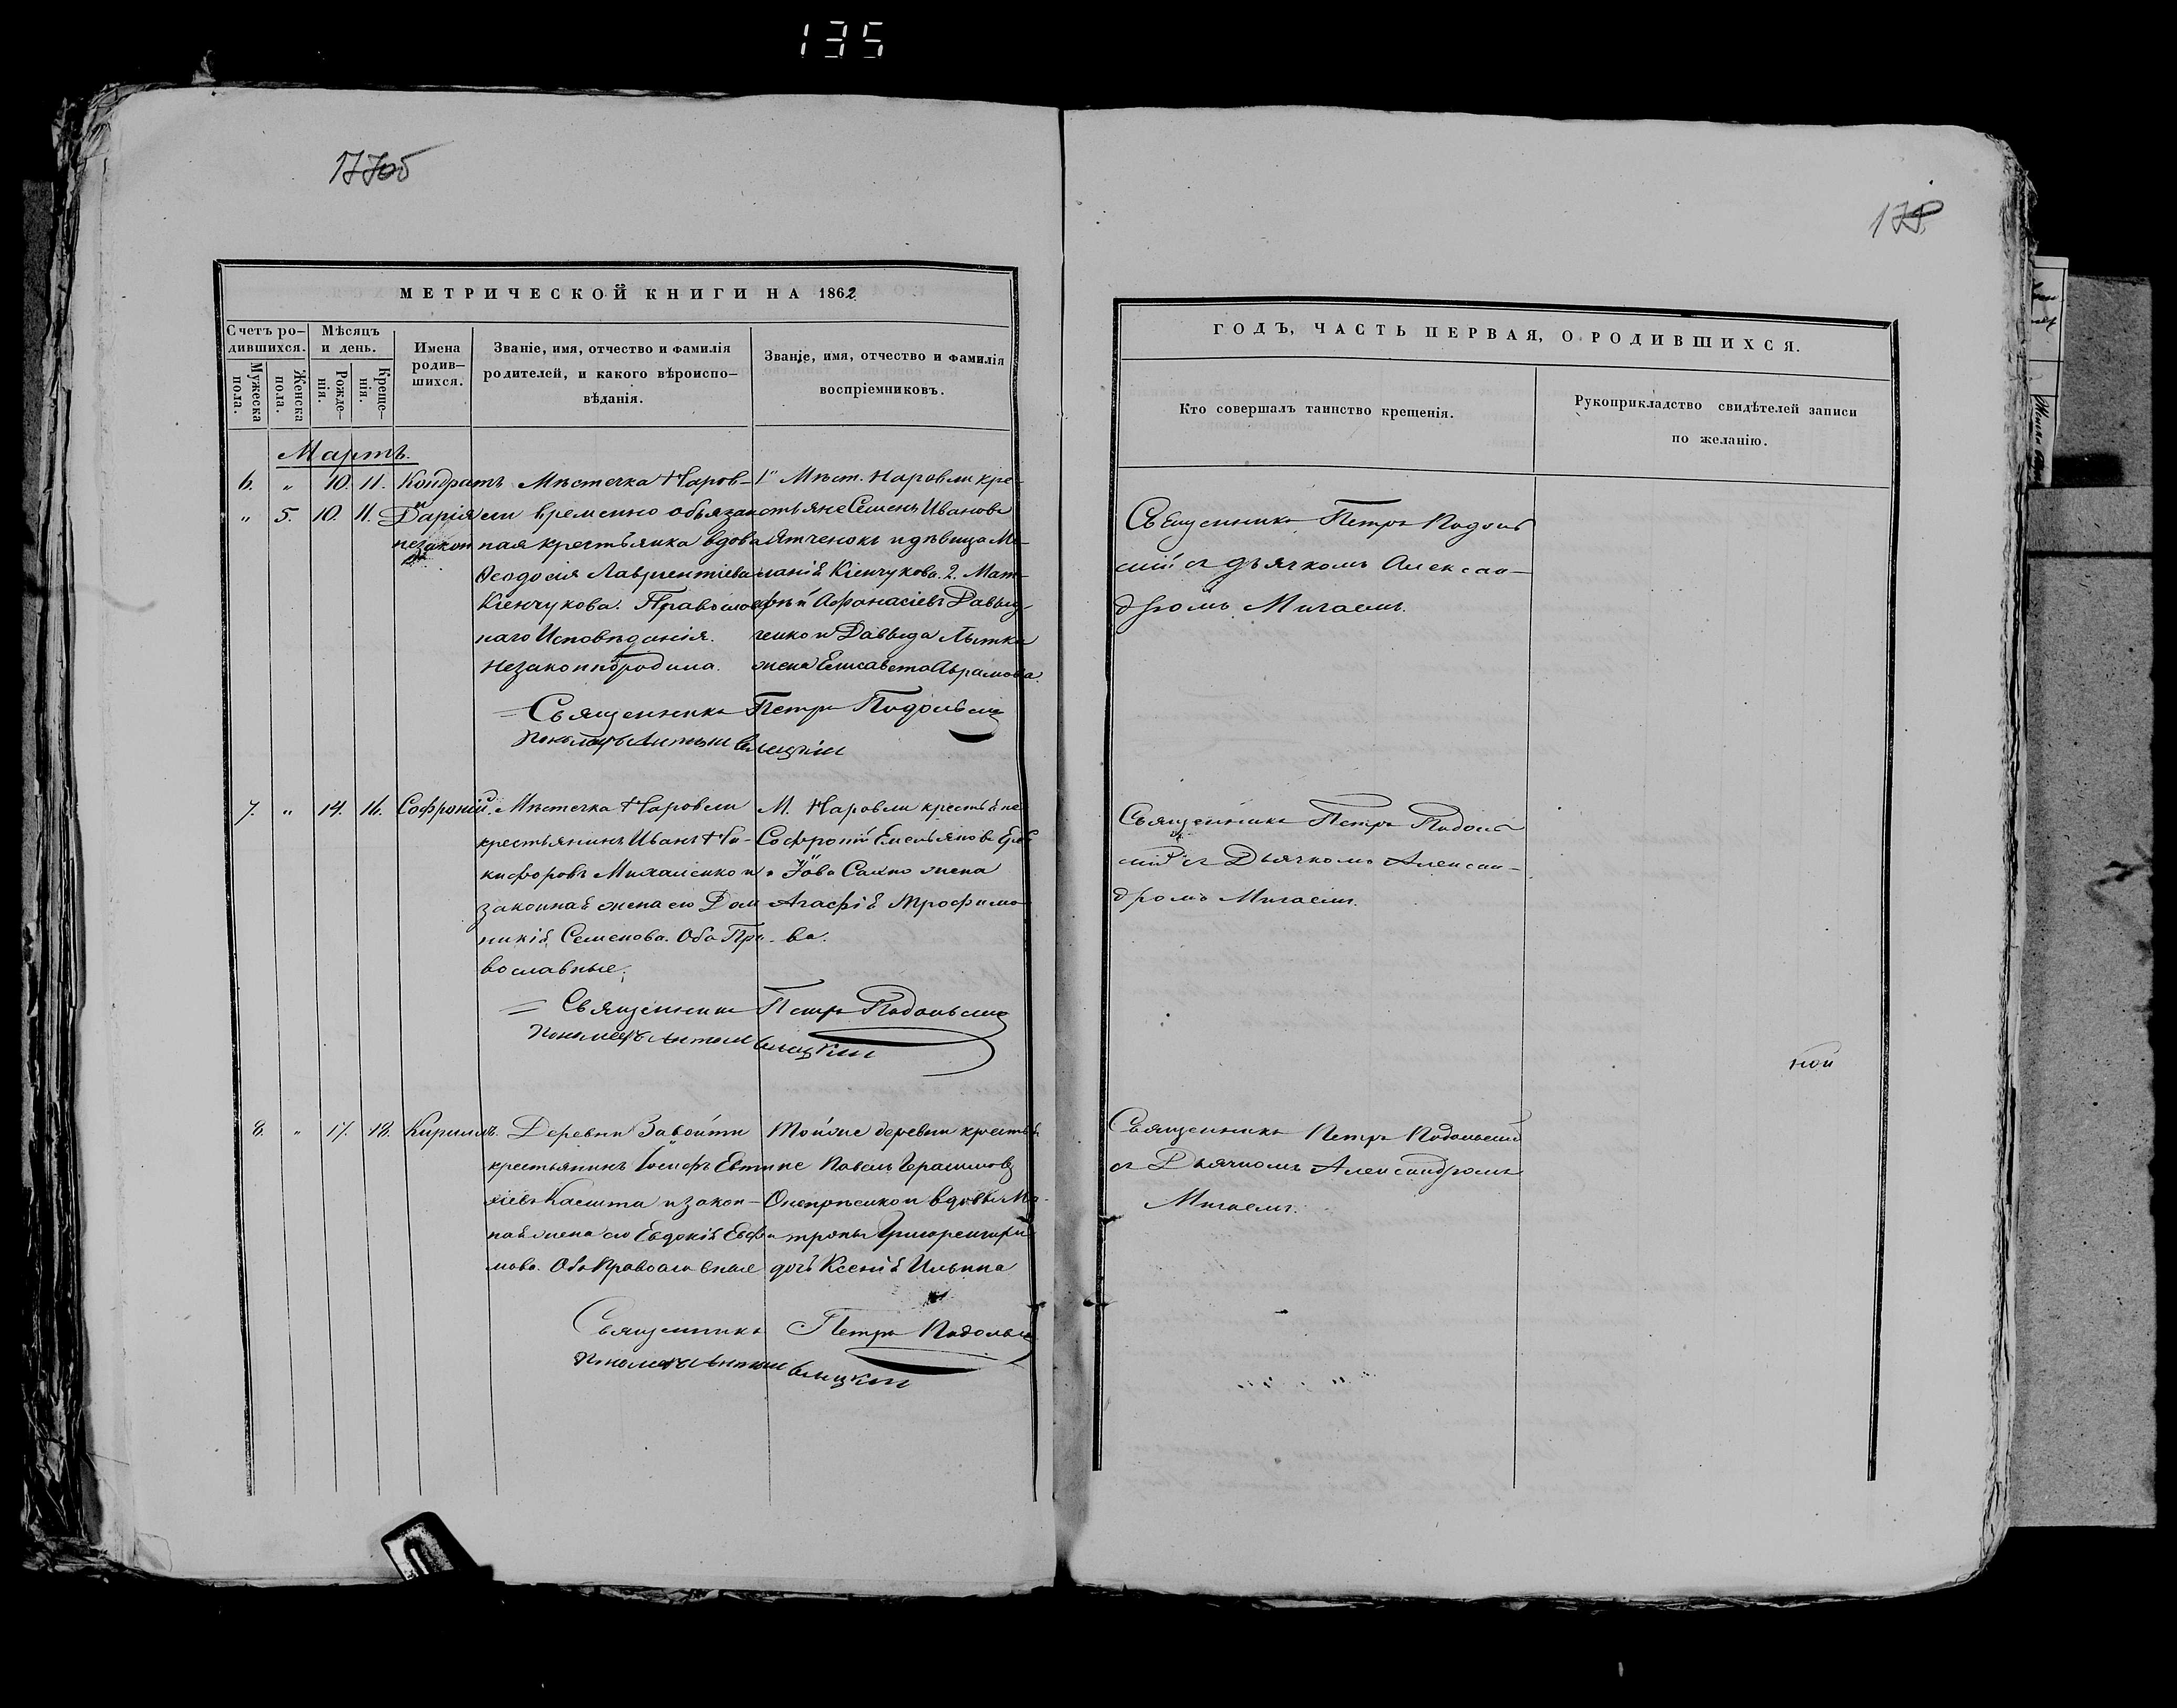 135
177об
178
МЕТРИЧЕСКОЙ КНИГИ НА 1862
Счетъ ро-
дившихся.
Мужеска
пола.
Женска
пола.
Мѣсяцъ
и день.
Рожде-
нія.
Креще-
нія.
Имена
родив-
шихся.
Званіе, имя, отчество и фамилія
родителей, и какого вѣроиспо-
вѣданія.
Званіе, имя, отчество и фамилія
воспріемниковъ.
Мартъ.
6. " 10. 11. Кондратъ
" 5. 10. 11. Дарія
незакон
Мѣстечка Наров-
ли временно обязан
ная крестьянка вдова
Ѳеодосія Лаврентіева
Кіенчукова. Православ
наго Исповѣданія.
Незаконно родила.
1" Мѣст. Наровли кре-
стьяне Семенъ Ивановъ
Ятченокъ и дѣвица Ме-
ланія Кіенчукова. 2. Мат-
фѣй Афанасіевъ Давыд-
ченко и Давыда Лытка
жена Елисавета Абрамова.
Священникъ Петръ Подольскій
Пономарь Антоній
7. " 14. 16. Софроній.
Мѣстечка Наровли
крестьянинъ Иванъ Ни-
кифоровъ Михаленко и
законная жена его Дом
никія Семенова. Оба Пра-
вославные.
М. Наровли крестьяне
Софроній Емельяновъ
и Іова Сахно жена
Агафія Трофимо
ва.
Священникъ Петръ Подольскій
Пономарь Антоній
8. " 17. 18. Кириллъ.
Деревни Завойти
крестьянинъ Іосифъ Евти
хіевъ Касита и закон-
ная жена его Евдокія Евфи
мова. Оба Православные
Той же деревни крестья
не Павелъ Герасимовъ
и вдовы Ма-
троны
дочь Ксенія Ильина
Священникъ Петръ Подольскій
Пономарь Антоній
ГОДЪ, ЧАСТЬ ПЕРВАЯ, О РОДИВШИХСЯ.
Кто совершалъ таинство крещенія.
Рукоприкладство свидѣтелей записи
по желанію.
Священникъ Петръ Подоль
скій съ дьячкомъ Алексан-
дромъ Мигаемъ.
Священникъ Петръ Подоль
скій съ Дьячкомъ Алексан-
дромъ Мигаемъ.
ной
Священникъ Петръ Подольскій
съ Дьячкомъ Александромъ
Мигаемъ.